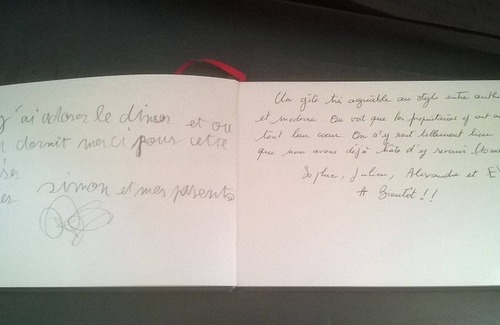 j'ai adorer le diner et ou
dormit merci pour cette
simon et mes parents
Un gîte très agréable au style entre auth
et moderne On voit que les propriétaires y ont
tout leur cœur On s'y sent tellement bien
que nous avons déjà hâte d'y revenir
Sophie, Julien, Alexandre et E
A Bientôt!!